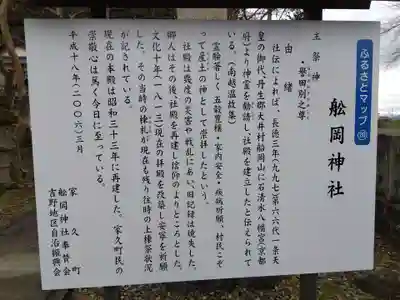 ふるさとマップ⑳
舩岡神社
主祭神
・誉田別之尊
由緒
社伝によれば、長徳三年(九九七)第六六代一条天
皇の御代、丹生郡大井村船岡山に石清水八幡宮(京都
府)より神霊を勧請し、社殿を建立したと伝えられて
いる。(南越温故集)
霊験著しく五穀豊穣・家内安全・疾病祈願、村民こぞ
って産土の神として崇拝したという。
社殿は幾度の天災や戦乱にあい、旧記録は焼失した。
郷人はその後、社殿を再建し信仰のよりどころとした。
文化十年(一八一三)現在の拝殿を改築し安寧を祈願
した。その当時の棟札が現在も残り往時の上棟祭状況
が記されている。
現在の本殿は昭和三十三年に再建した。家久町民の
崇敬心は篤く今日に至っている。
平成十八年(二〇〇六)三月
家久町
舩岡神社奉賛会
吉野地区自治振興会